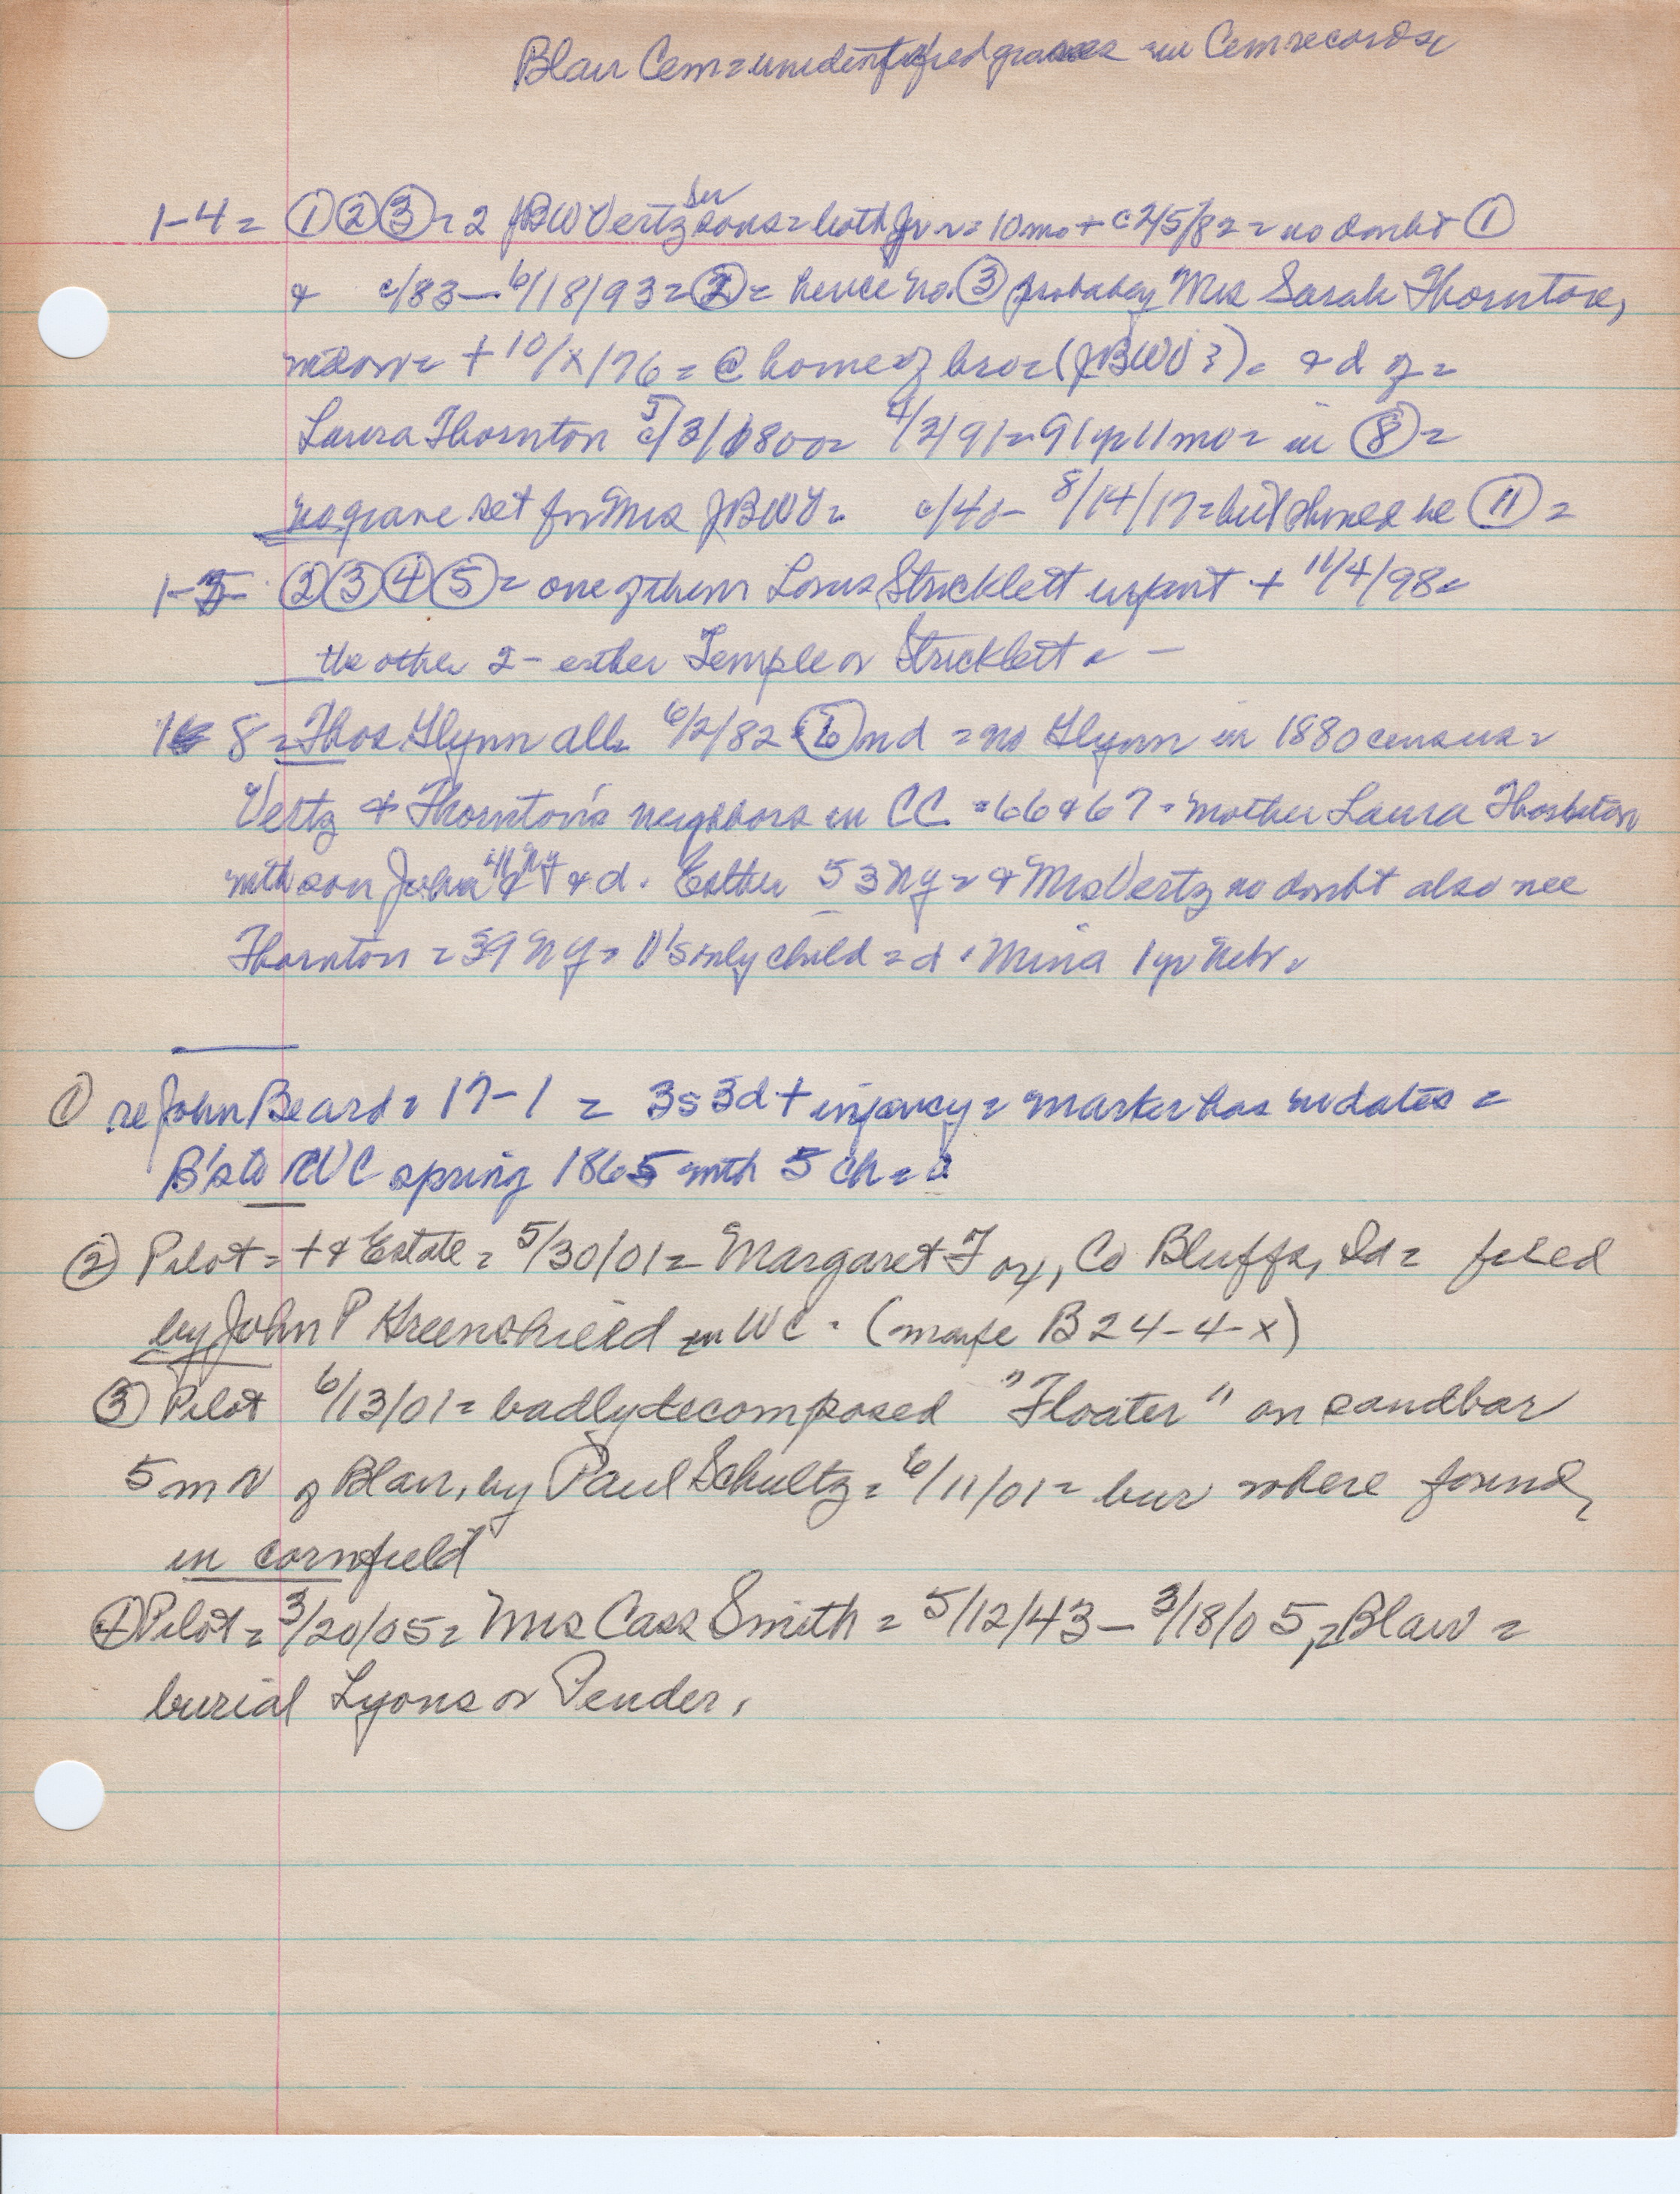 Blair Cem = unidentified graves in Cem records
1-4 = ① ② ③ = 2 JBW Vertz Sr sons = both Jr = 10 mo + c 2/5/82 = no doubt ①
& c/83 — 6/18/93 = ② = hence no. ③ probably Mrs Sarah Thornton,
widow = + 10/x/76 = @ home of bro = (JBWV?) = & d of =
Laura Thornton c 5/3/1800 = 4/2/91 = 91 yr 11 mo = in ⑧ =
no grave set for Mrs JBWV = c/40 - 8/14/17 = but should be ⑪ =
1-5 ② ③ ④ ⑤ = one of them Stricklett infant + 11/4/98 =
the other 2 - either Temple or Stricklett = —
8 = Thos Glynn all = 6/2/82 ⑥ nd = no Glynn in 1880 census =
Vertz & Thornton's neighbors in CC = 66 & 67 = mother Laura Thornton
with son John & d. Esther 53 NY = & Mrs Vertz no doubt also nee
Thornton = 39 NY = V's only child = d. Mina 1 yr Nebr =
① re John Beard = 17-1 = 3s 3d + infancy = marker has no dates =
B's to WC spring 1865 with 5 ch =
② Pilot = + & Estate = 5/30/01 = Margaret Fox, Co Bluffs, Ia = filed
by John P Greenshield in WC. (maybe B 24-4-x)
③ Pilot 6/13/01 = badly decomposed "Floater" on sandbar
5 m N of Blair, by Paul Schultz = 6/11/01 = bur where found,
in cornfield
④ Pilot = 3/20/05 = Mrs Cass Smith = 5/12/43 — 3/18/05, = Blair =
burial Lyons or Pender.